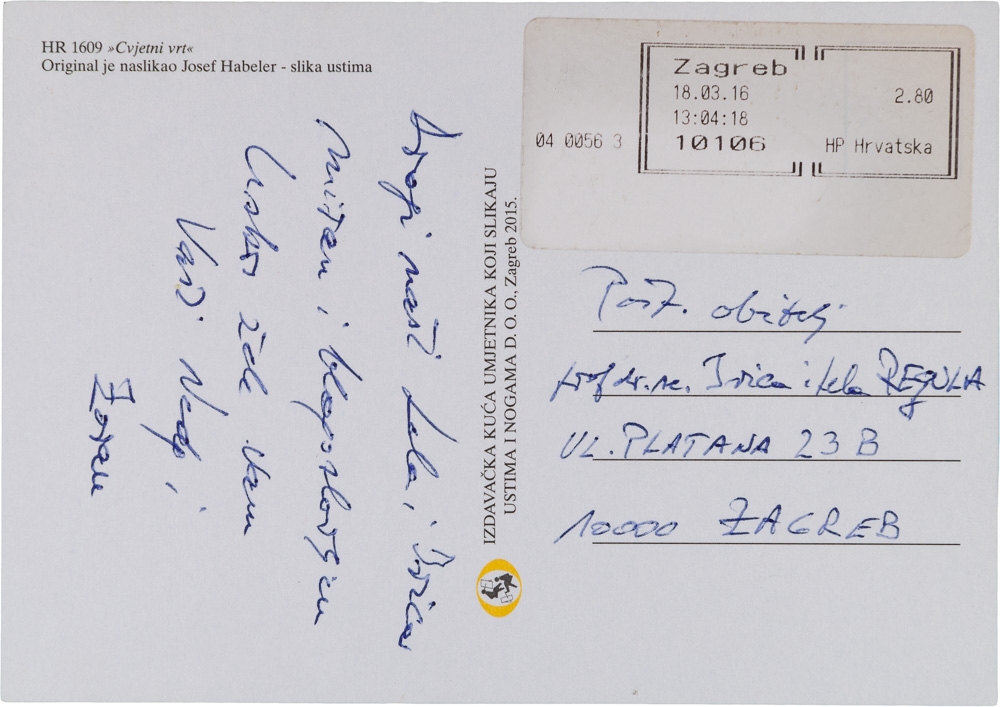 HR 1609 »Cvjetni vrt«
Original je naslikao Josef Habeler - slika ustima
Dragi naši Lela i Ivica
Miran i blagoslovljen
Uskrs žele Vam
Vaši Neda i
Zoran
IZDAVAČKA KUĆA UMJETNIKA KOJI SLIKAJU
USTIMA I NOGAMA D. O. O., Zagreb 2015.
04 0056 3
Zagreb
18.03.16
13:04:18
10106
2.80
HP Hrvatska
Pošt. obitelj
prof.dr.sc. Ivica i Lela REGULA
UL. PLATANA 23 B
10000 ZAGREB